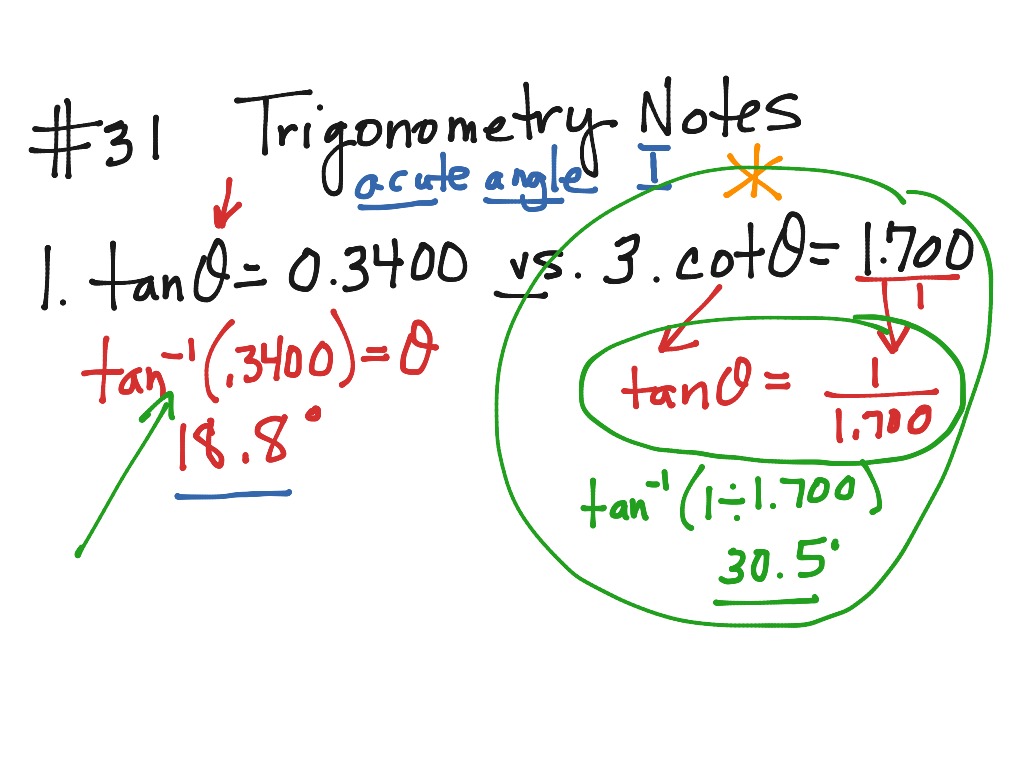 #31 Trigonometry Notes
acute angle I
1. tanθ = 0.3400 vs. 3. cotθ = 1.700/1
tan⁻¹(.3400) = θ
18.8°
tanθ = 1/1.700
tan⁻¹(1÷1.700)
30.5°